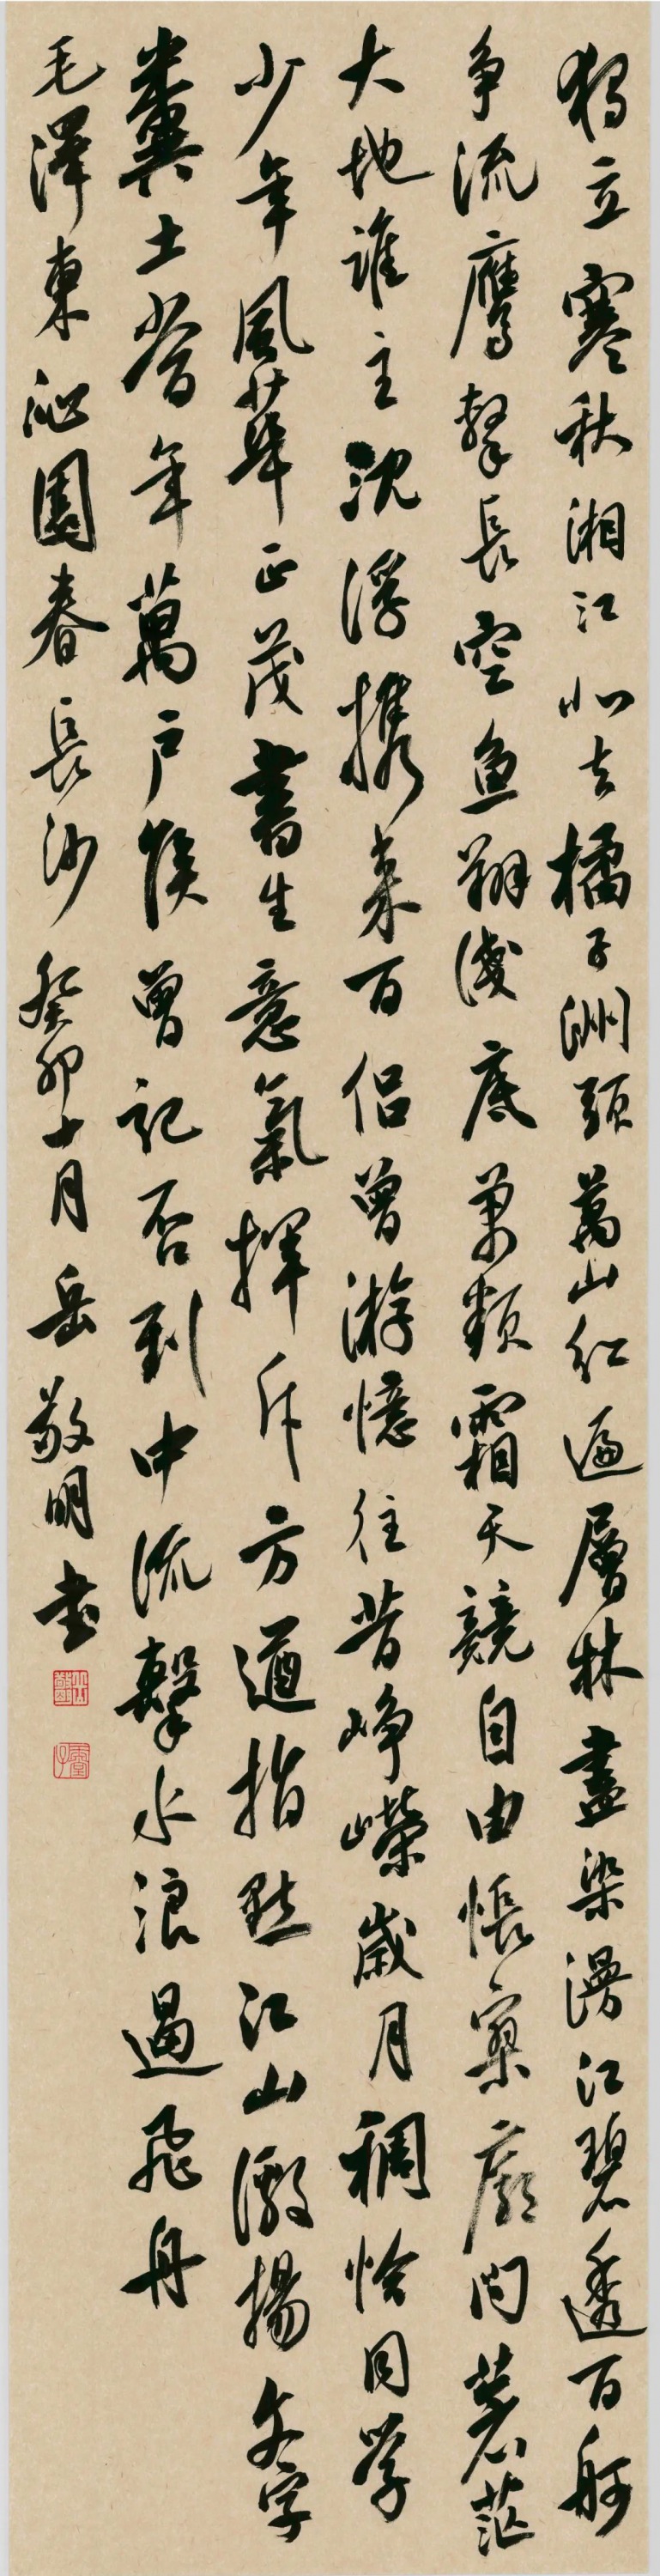 獨立寒秋湘江北去橘子洲頭萬山紅遍層林盡染漫江碧透百舸
争流鷹擊長空魚翔淺底萬類霜天競自由悵寥廓問蒼茫
大地誰主沈浮携来百侣曾游憶往昔崢嶸歲月稠恰同學
少年風華正茂書生意氣揮斥方遒指點江山激揚文字
糞土當年萬户侯曾記否到中流擊水浪遏飛舟
毛澤東沁園春長沙 癸卯十月岳敬明書